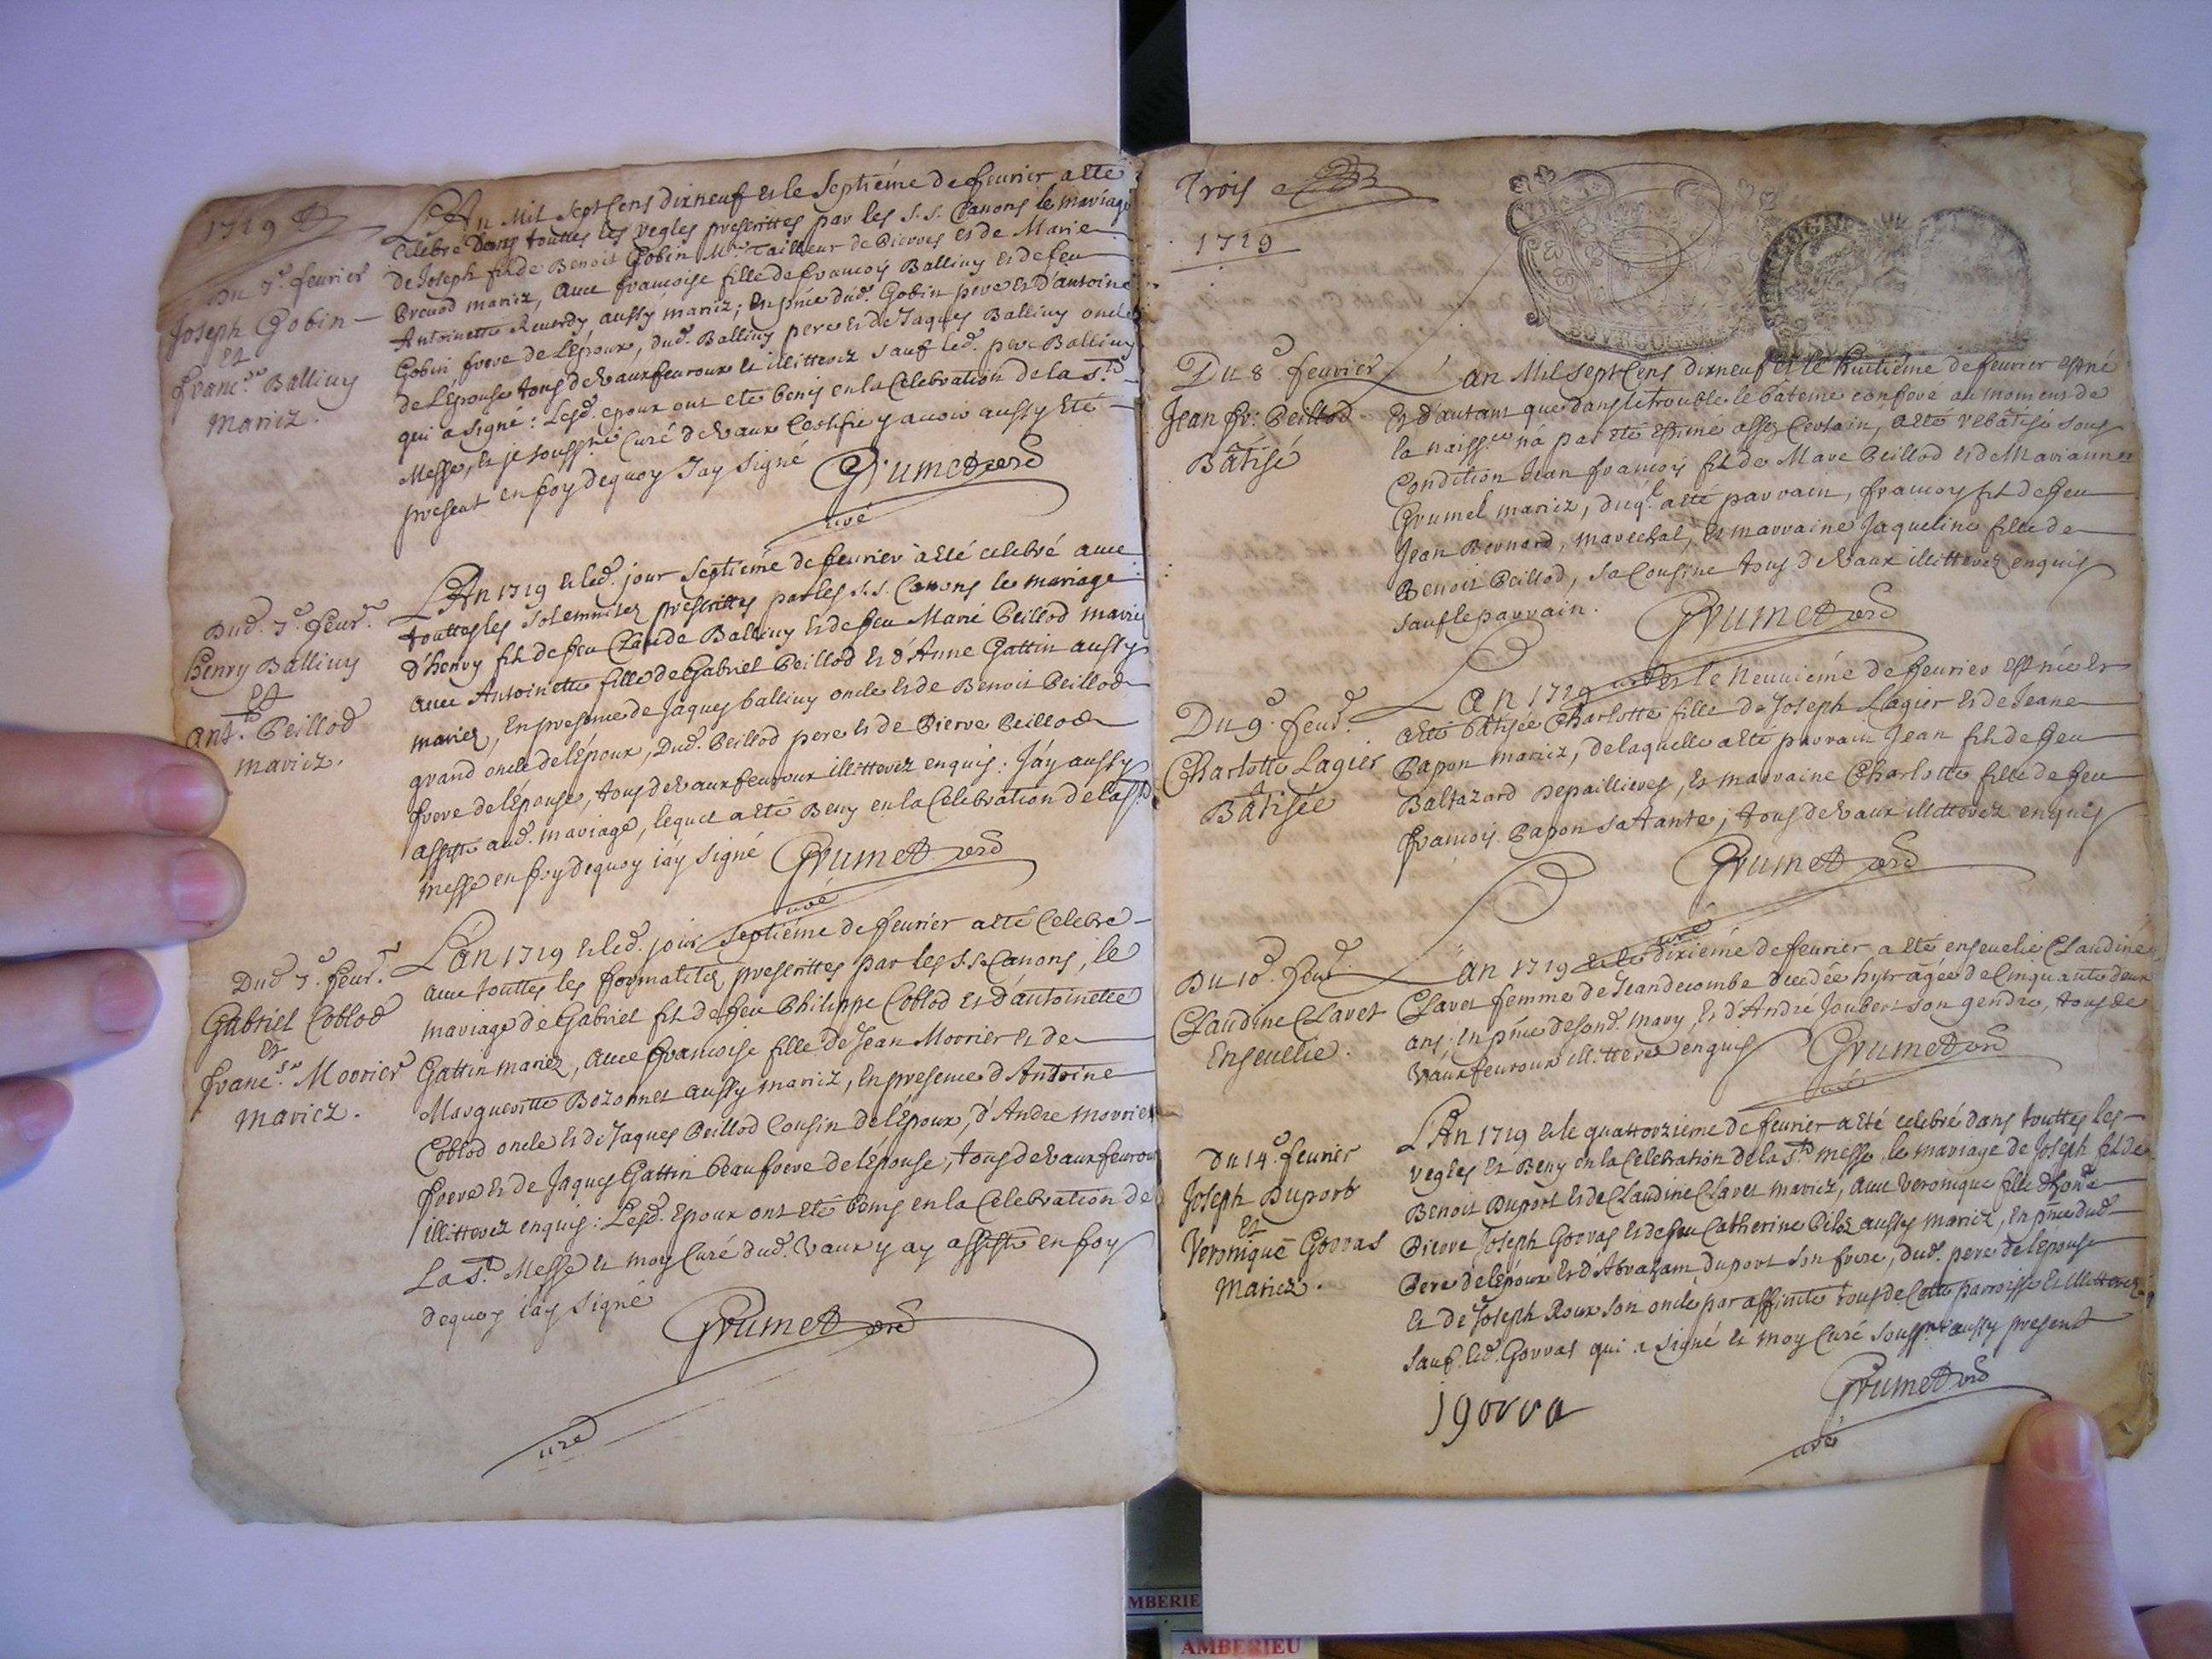 1719
Du 7e. feurier
Joseph Gobin
Et
francse. Balliuy
Mariez.
L'An Mil Sept Cens dixneuf et le Septiéme de feurier a eté
celebré dans touttes les regles prescrittes par les S.S. Canons le mariage
de Joseph fils de Benoit Gobin Mre. Tailleur de Pierres et de Marie
mariez, auec francoise fille de francois Balliuy et de feu
Antoinette Reuerdy aussy mariez; En pnce dud. Gobin pere et D'antoine
Gobin frere de L'epoux, dud. Balliuy pere et de Jaques Balliuy oncle
de L'Epouse tous de Vaux feuroux et illitterez sauf led. pere Balliuy
qui a signé: Lesd. epoux ont eté benis en la Celebration de la Ste.
Messe, et je soussné. Curé de Vaux Certifie y auoir aussy Eté
present en foy dequoy J'ay Signé Grumet
curé
Dud. 7e. feur.
Henry Balliuy
Et
Ante. Peillod
mariez.
L'An 1719 et led. jour Septiéme de feurier a eté celebré auec
touttes les Solemnitez prescrittes par les S.S. Canons le mariage
d'henry fils de feu Claude Balliuy et de feu Marie Peillod mariez
auec Antoinette fille de Gabriel Peillod et d'Anne Gattin aussy
mariez, En presence de Jaques balliuy oncle et de Benoit Peillod
grand oncle de l'époux, Dud. Peillod pere et de Pierre Peillod
frere de l'épouse, tous de Vaux feuroux illitterez enquis. J'ay aussy
assisté aud. mariage, lequel a eté Beny en la Celebration de la Ste.
messe en foy dequoy iay signé Grumet
curé
Dud 7e. feur.
Gabriel Coblod
Et
francse. Morrier
mariez.
L'an 1719 et led. jour Septiéme de feurier a eté Celebré
auec touttes les formalitez prescrittes par les S.S. Canons, le
mariage de Gabriel fils de feu Philippe Coblod et d'antoinette
Gattin mariez, auec francoise fille de Jean Morrier et de
Margueritte Bozonnet aussy mariez, En presence d'Antoine
Coblod oncle et de Jaques Peillod Cousin de l'Epoux, d'Andre morrier
frere et de Jaques Gattin Beaufrere de l'épouse, tous de Vaux feuroux
illitterez enquis: Lesd. Epoux ont eté benis en la Celebration de
La Ste. Messe et moy Curé dud. Vaux y ay assisté en foy
dequoy iay signé
Grumet
curé
Trois
1719
Du 8e. feurier
Jean fr: Peillod
Bâtisé
An Mil Sept Cens dixneuf et le huitiéme de feurier est né
Et d'autant que dans le trouble le bâteme conferé au moment de
la naissce. n'a pas eté estimé assez Certain, a eté rebâtisé sous
Condition Jean francois fils de Marc Peillod et de Marianne
Grumel mariez, duql. a eté parrain, francois fils de feu
Jean Bernard, marechal, et marraine Jaqueline fille de
Benoit Peillod, sa Cousine tous de Vaux illitterez enquis
sauf le parrain. Grumet
BOVRGOGNE
Du 9e. feur.
Charlotte Lagier
Bâtisée
An 1719 et le Neuuiéme de feurier est née Et
a eté bâtisée Charlotte fille de Joseph Lagier et de Jeane
Papon mariez, de laquelle a eté parrain Jean fils de feu
Baltazard Depaillieres, et marraine Charlotte fille de feu
francois Papon sa tante; tous de Vaux illitterez enquis
Grumet
curé
Du 10e. feur.
Claudine Clavet
Enseuelie.
An 1719 et le dixiéme de feurier a eté enseuelie Claudine
Clavet femme de Jean decombe decedée hyer agée de Cinquante deux
ans, En pnce de sond. mary, et d'André Joubert son gendre, tous de
Vaux feuroux illitterez enquis Grumet
curé
Du 14e. feurier
Joseph Duport
Et
Veronique Gorras
Mariez.
L'An 1719 et le quattorzieme de feurier a eté celebré dans touttes les
regles et Beny en la Celebration de la Ste. messe le mariage de Joseph fils de
Benoit Duport et de Claudine Clavet mariez, auec Veronique fille d'honte.
Pierre Joseph Gorras et de feu Catherine aussy mariez, En pnce dud.
Pere de l'époux et d'Abraham duport son frere, dud. pere de l'épouse
et de Joseph Roux son oncle par affinité tous de Cette parroisse et illitterez
Sauf led. Gorras qui a signé et moy Curé soussné. aussy present
j gorra
Grumet
curé
AMBERIEU